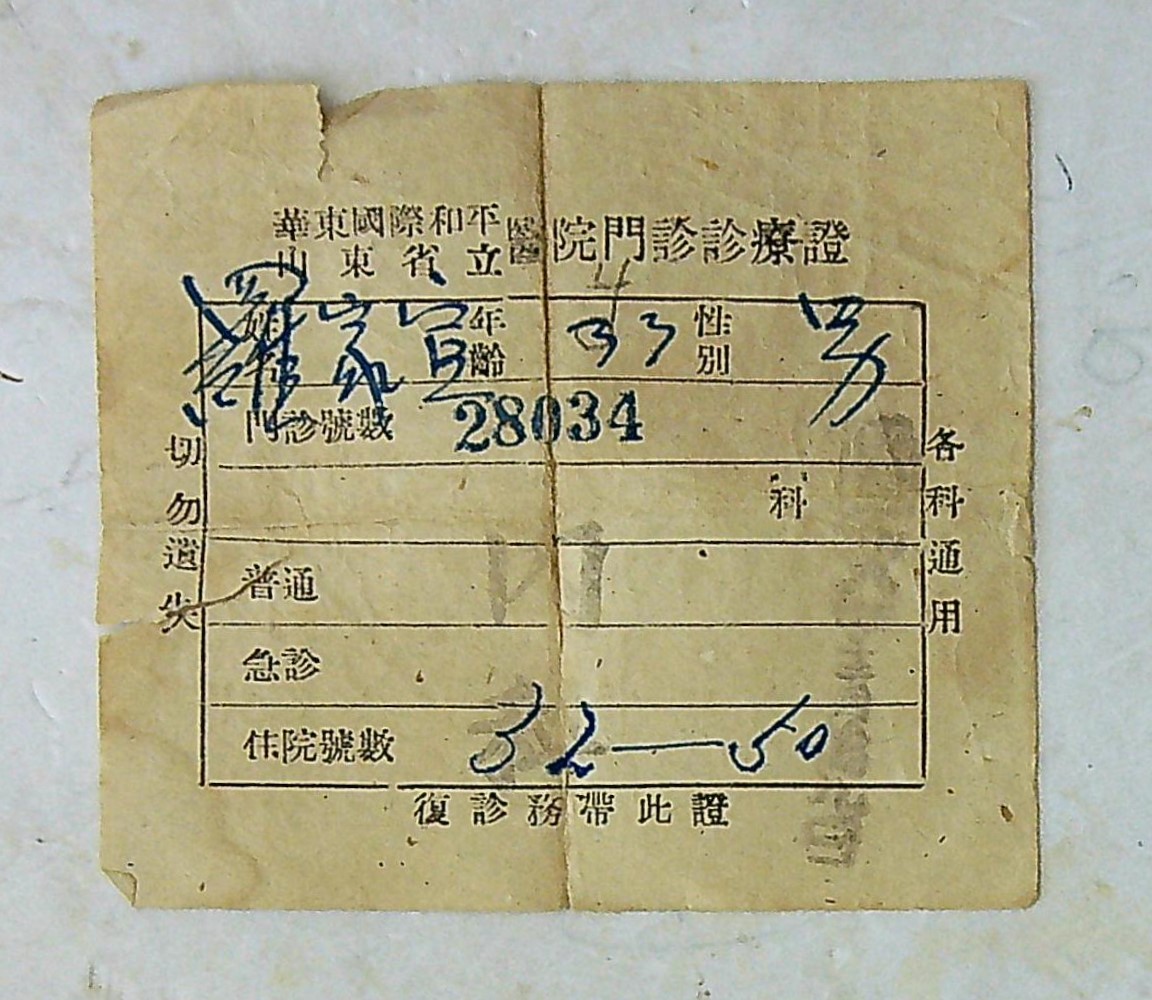 華東國際和平
山東省立
醫院門診診療證
姓 羅家宣 年齡 33 性別 男
4
門診號數 28034
科
普通
急診
住院號數 32—50
切勿遺失
各科通用
復診務帶此證